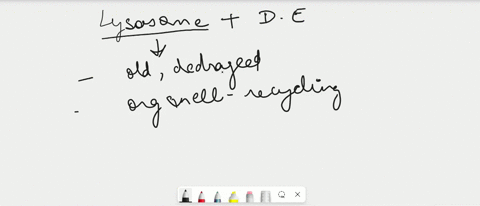 Lysosome + D.E
- old, dedraged
- org snell - recycling